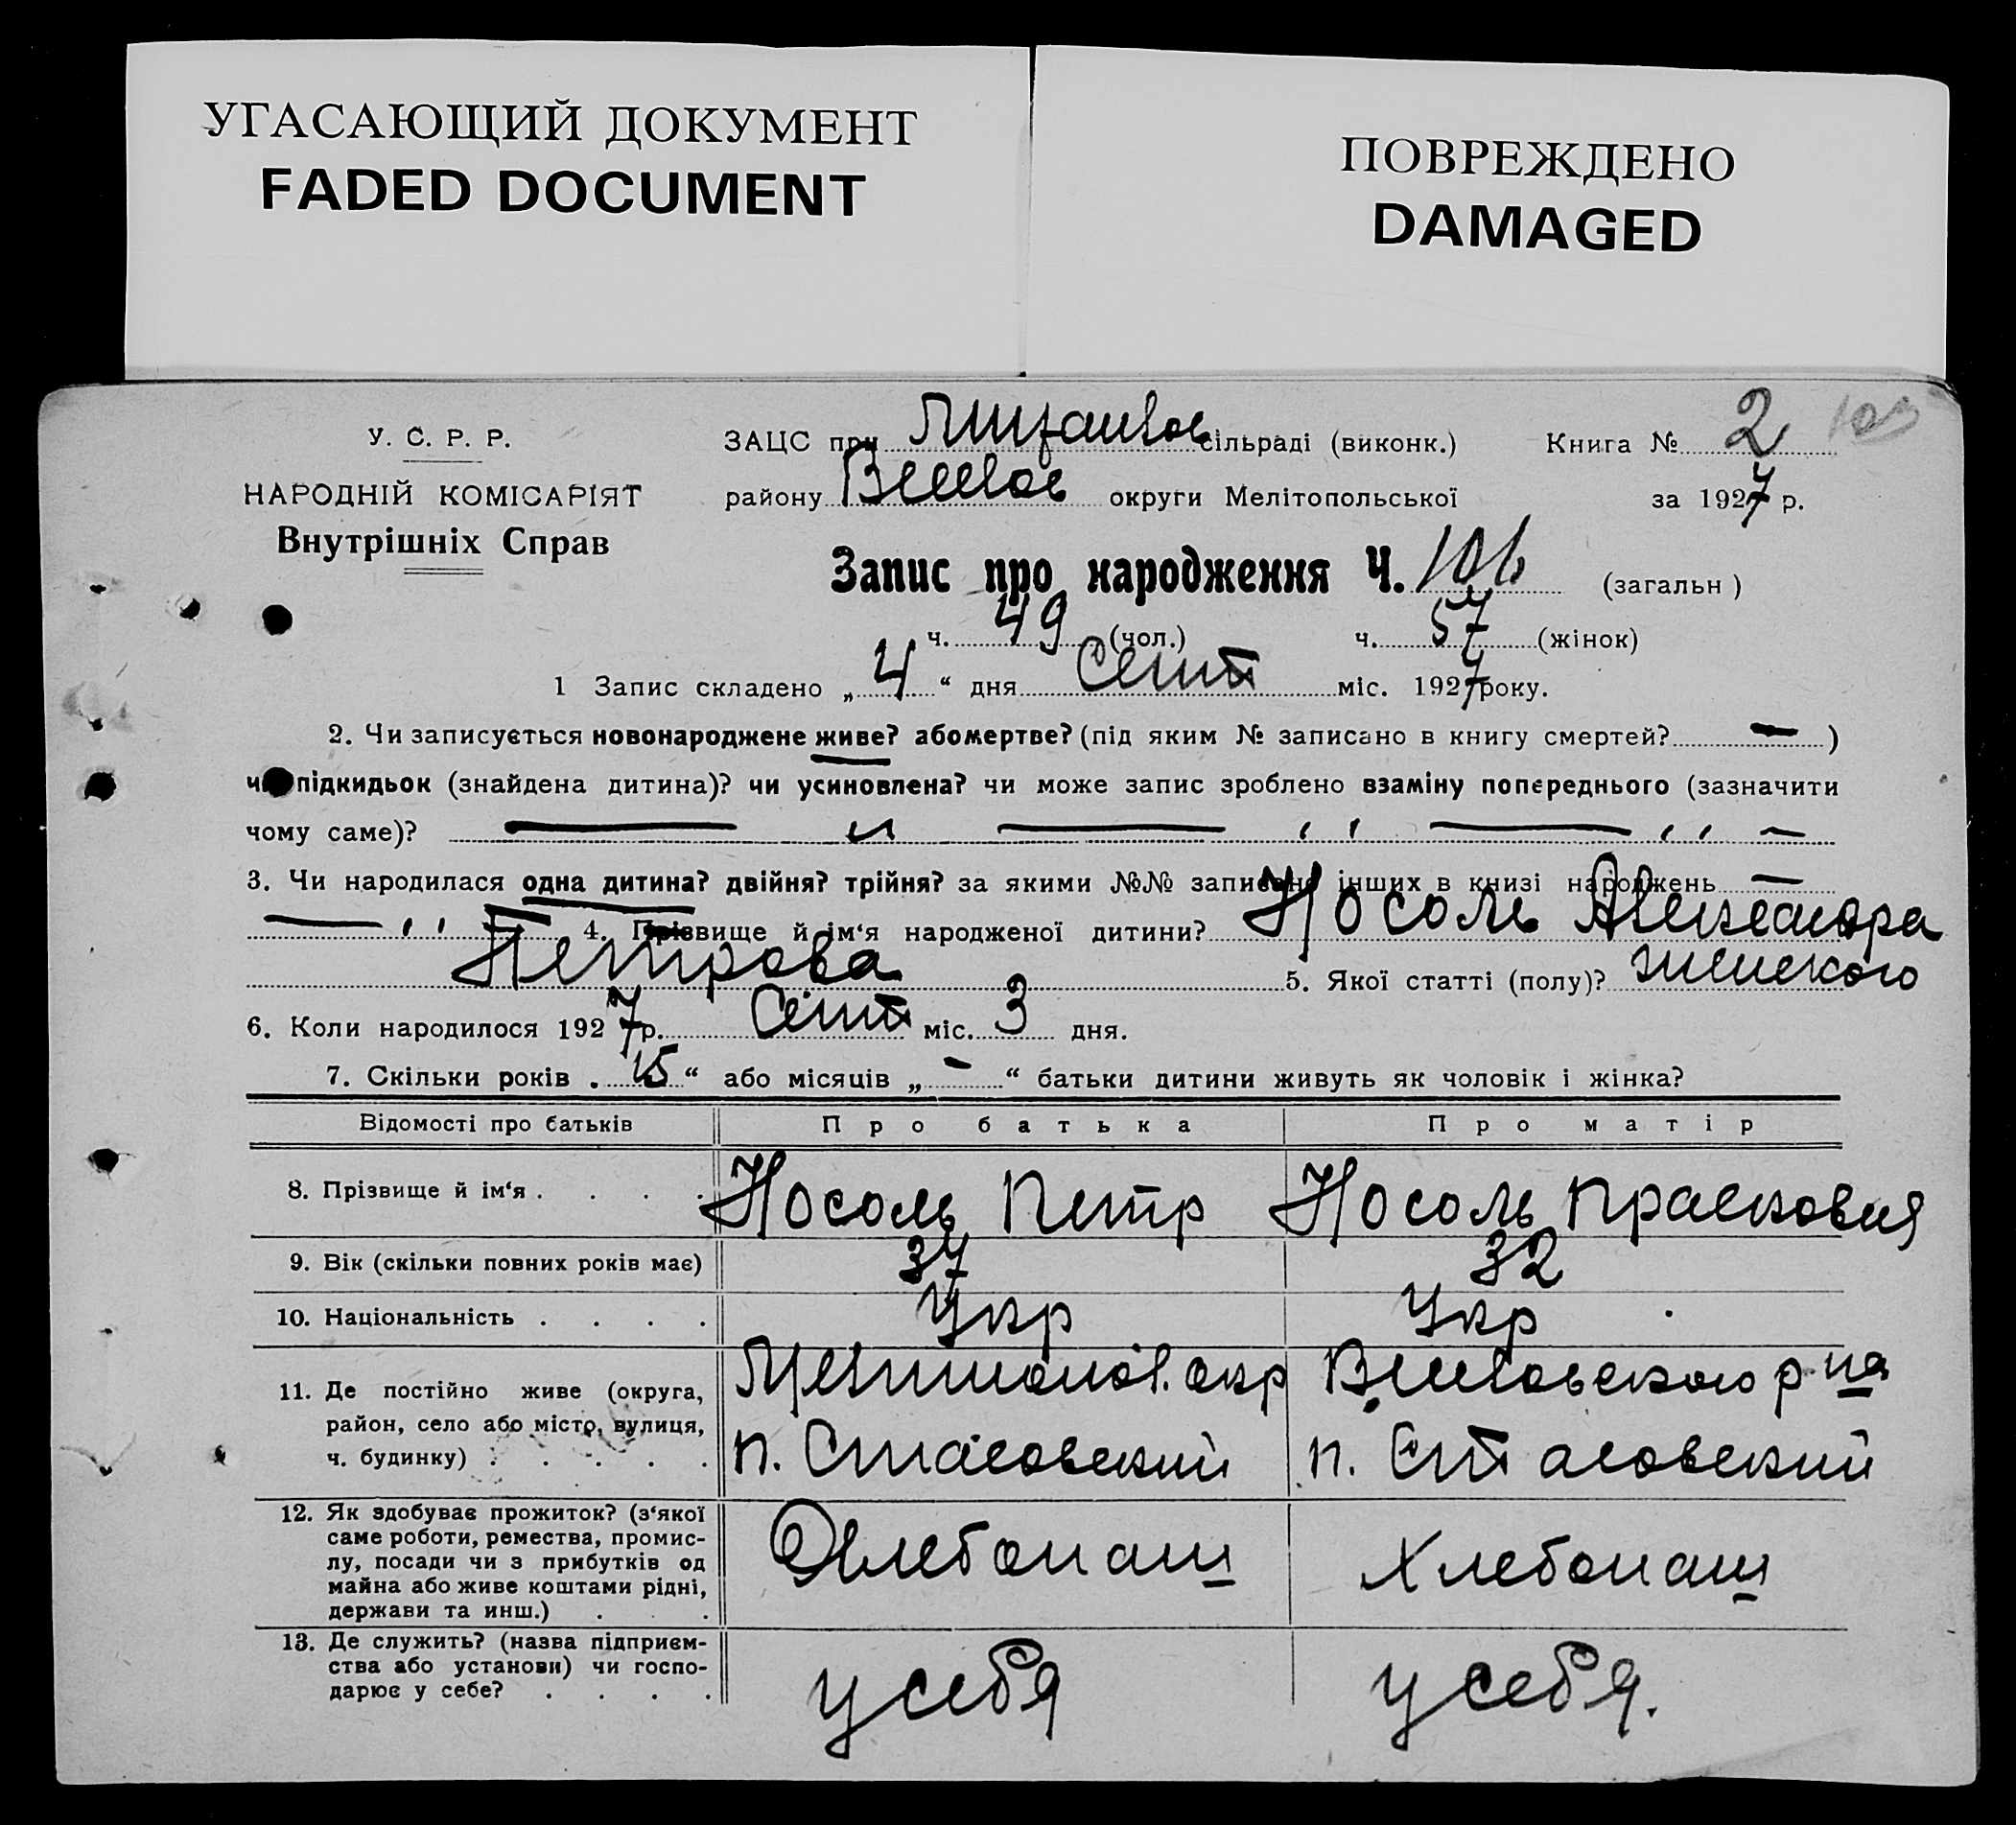 УГАСАЮЩИЙ ДОКУМЕНТ
FADED DOCUMENT
ПОВРЕЖДЕНО
DAMAGED
У. С. Р. Р.
НАРОДНІЙ КОМІСАРІЯТ
Внутрішніх Справ
ЗАЦС при сільраді (виконк.)
району округи Мелітопольської
Книга № 2
за 1927 р.
Запис про народження Ч. 106 (загальн)
ч. 49 (чол.) ч. 57 (жінок)
1 Запис складено „4“ дня Сент міс. 1927 року.
2. Чи записується новонароджене живе? або мертве? (під яким № записано в книгу смертей? — )
чи підкидьок (знайдена дитина)? чи усиновлена? чи може запис зроблено взаміну попереднього (зазначити
чому саме)? — „ — „ — „ —
3. Чи народилася одна дитина? двійня? трійня? за якими №№ записано інших в книзі народжень —
— „ — 4. Прізвище й ім‘я народженої дитини? Носоль Александра
Петрова 5. Якої статті (полу)? женского
6. Коли народилося 1927 р. Сент міс. 3 дня.
7. Скільки років „15“ або місяців „–“ батьки дитини живуть як чоловік і жінка?
Відомості про батьків Про батька Про матір
8. Прізвище й ім‘я . . . . Носоль Петр Носоль Прасковия
9. Вік (скільки повних років має) 37 32
10. Національність . . . . Укр Укр
11. Де постійно живе (округа, район, село або місто, вулиця, ч. будинку) . . . . .
окр
п. Стасовский
р-на
п. Стасовский
12. Як здобуває прожиток? (з‘якої саме роботи, ремества, промислу, посади чи з прибутків од майна або живе коштами рідні, держави та инш.) . . . Хлебопаш Хлебопаш
13. Де служить? (назва підприємства або установи) чи господарює у себе? . . . . у себя у себя.